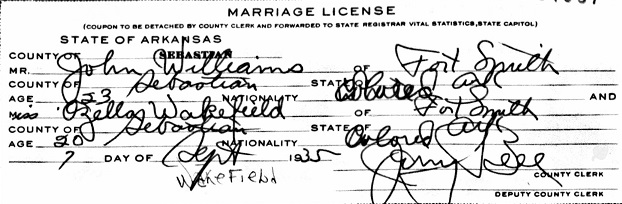 MARRIAGE LICENSE
(COUPON TO BE DETACHED BY COUNTY CLERK AND FORWARDED TO STATE REGISTRAR VITAL STATISTICS, STATE CAPITOL)
STATE OF ARKANSAS
COUNTY OF SEBASTIAN
MR. John Williams OF Fort Smith
COUNTY OF Sebastian STATE OF Ark
AGE 23 NATIONALITY Colored AND
Miss Ozella Wakefield OF Fort Smith
COUNTY OF Sebastian STATE OF Ark
AGE 20 NATIONALITY Colored
7 DAY OF Sept 1935
WAKEFIELD
COUNTY CLERK
DEPUTY COUNTY CLERK